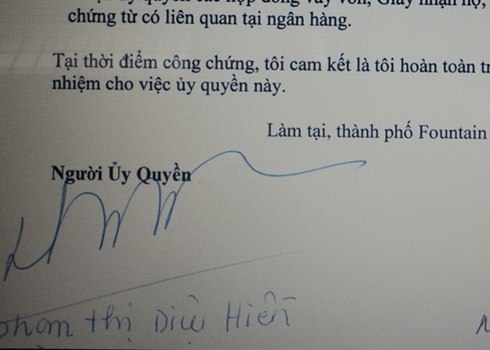 ủy quyền các hợp đồng vay vốn, Giấy nhận nợ,
chứng từ có liên quan tại ngân hàng.
Tại thời điểm công chứng, tôi cam kết là tôi hoàn toàn
nhiệm cho việc ủy quyền này.
Làm tại, thành phố Fountain
Người Ủy Quyền
Phạm Thị Diệu Hiền